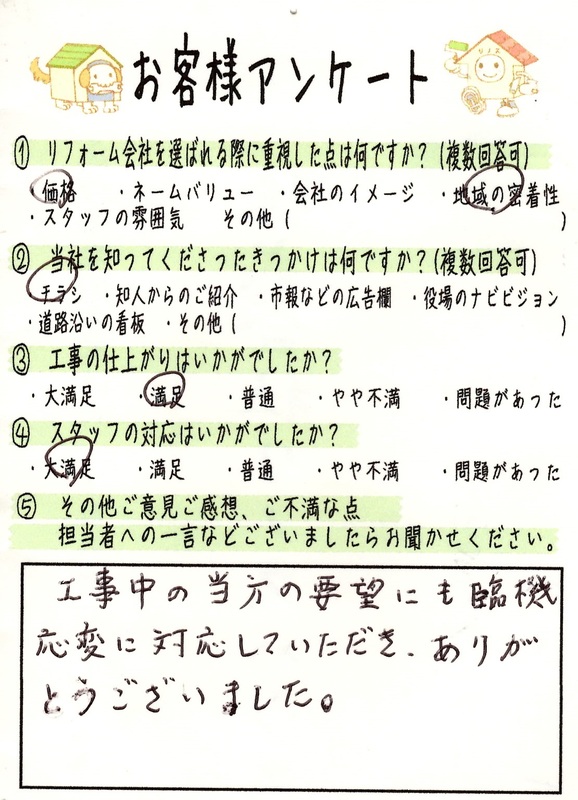 お客様アンケート
リノエ
① リフォーム会社を選ばれる際に重視した点は何ですか?(複数回答可)
・価格 ・ネームバリュー ・会社のイメージ ・地域の密着性
・スタッフの雰囲気 その他( )
② 当社を知ってくださったきっかけは何ですか?(複数回答可)
チラシ ・知人からのご紹介 ・市報などの広告欄 ・役場のナビビジョン
・道路沿いの看板 ・その他( )
③ 工事の仕上がりはいかがでしたか?
・大満足 ・満足 ・普通 ・やや不満 ・問題があった
④ スタッフの対応はいかがでしたか?
・大満足 ・満足 ・普通 ・やや不満 ・問題があった
⑤ その他ご意見ご感想、ご不満な点
担当者への一言などございましたらお聞かせください。
工事中の当方の要望にも臨機
応変に対応していただき、ありが
とうございました。